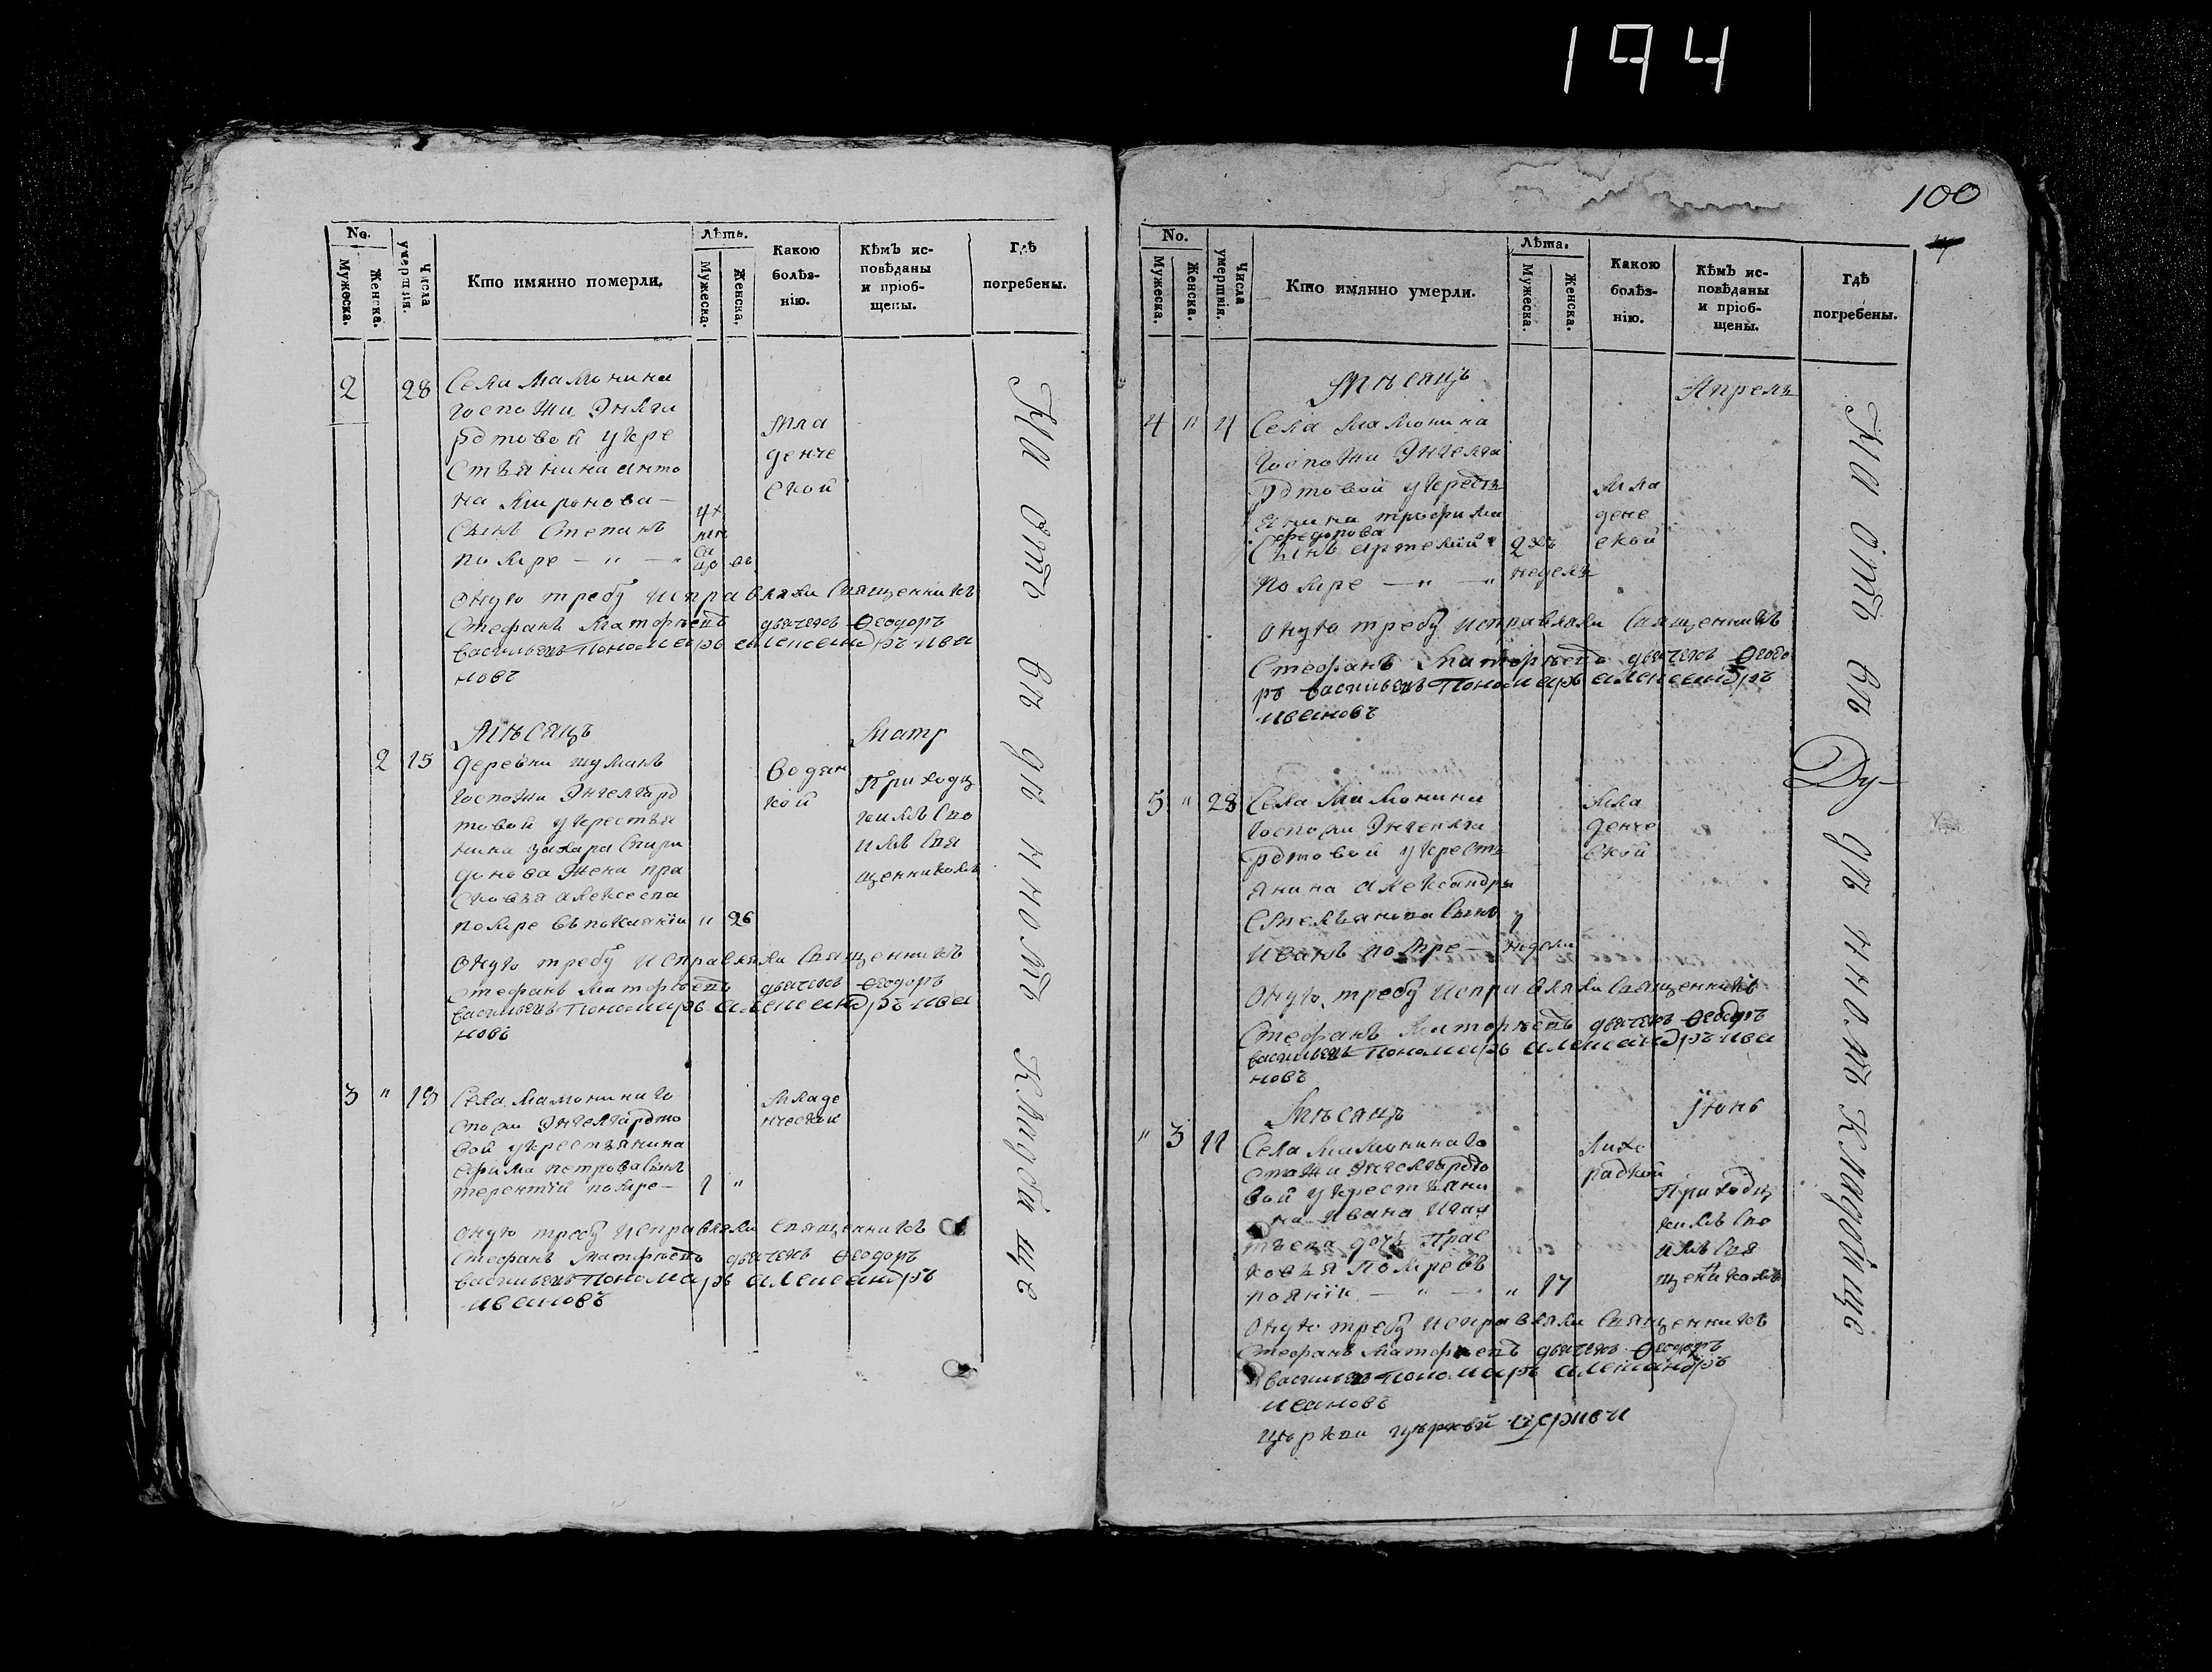 194
No.
Мужеска.
Женска.
Числа умершвія.
Кто имянно померли.
Лѣтъ.
Мужеска.
Женска.
Какою болѣз-
нію.
Кѣмъ ис-
повѣданы
и пріоб-
щены.
Гдѣ
погребены.
2 28 Села Мамонина
госпожи Энгелга
рдтовой у кре
стьянина анто
на миронова
сынъ Степанъ
помре — " — "
4х
мѣ
ся
цо въ
Мла
денче
ской
Оную требу исправляли священникъ
Стефанъ дьячекъ Ѳеодоръ
васильевъ пономарь александръ ива
новъ
Мѣсяцъ
Март
2 15 деревни шуманъ
госпожи Энгелгард
товой у крестья
нина захара спири
донова жена пра
сковья алексеева
помре въ покаяніи " 26
Водян
кой
Приходц
кимъ сво
имъ свя
щенникомъ
Оную требу исправляли священникъ
Стефанъ дьячекъ Ѳеодоръ
васильевъ пономарь александръ ива
новъ
3 " 19 Села мамонина го
спожи Энгелгардто
вой у крестьянина
ефима петрова сынъ
терентій помре — 1 "
Младе
нческой
Оную требу исправляли священникъ
Стефанъ дьячекъ Ѳеодоръ
васильевъ пономарь александръ
ивановъ
На отъ въ дѣ нномъ Кладби ще
100
No.
Мужеска.
Женска.
Числа умершвія.
Кто имянно умерли.
Лѣта.
Мужеска.
Женска.
Какою
болѣз-
нію.
Кѣмъ ис-
повѣданы
и пріоб-
щены.
Гдѣ
погребены.
Мѣсяцъ
Апрель
4 " 4 Села Мамонина
госпожи Энгелга
рдтовой у кресть
янина трофима
федорова
сынъ артемій
помре — " — "
2хъ
недель
Мла
дене
ской
Оную требу исправляли священникъ
Стефанъ дьячекъ Ѳеодо
ръ васильевъ пономарь александръ
ивановъ
5 " 28 Села Мамонина
госпожи Энгелга
рдтовой у кресть
янина александра
емельянова сынъ
иванъ помре — недели
Мла
денче
ской
Оную требу исправляли священникъ
Стефанъ дьячекъ Ѳеодоръ
васильевъ пономарь александръ ива
новъ
Мѣсяцъ
Іюнь
" 3 11 Села Мамонина го
спожи Энгелгардто
вой у крестьяни
на Ивана Игна
тьева дочь Прас
ковья помре въ
покаяніи — " — " 17
Лихо
радкой
Приходц
кимъ сво
имъ свя
щенникомъ
Оную требу исправляли священникъ
Стефанъ дьячекъ Ѳеодоръ
васильевъ пономарь александръ
ивановъ
церкви
На отъ въ Ду- дѣ нномъ Кладбище